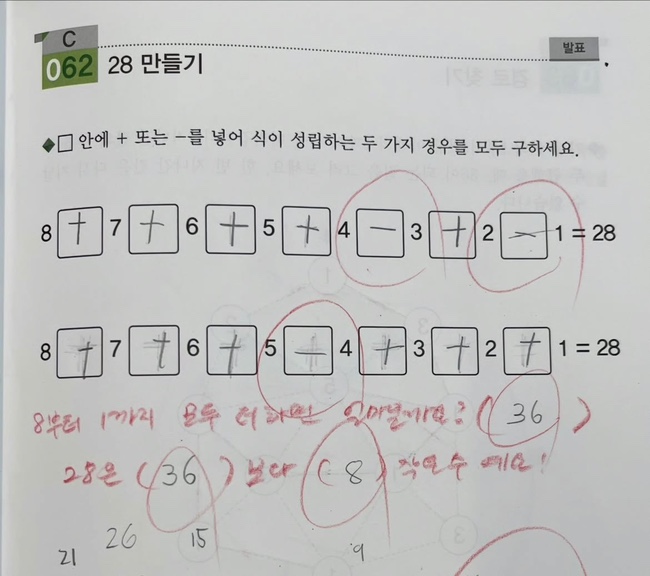 C
062 28 만들기 발표
□ 안에 + 또는 −를 넣어 식이 성립하는 두 가지 경우를 모두 구하세요.
8 + 7 + 6 + 5 + 4 − 3 + 2 − 1 = 28
8 + 7 + 6 + 5 − 4 + 3 + 2 + 1 = 28
8부터 1까지 모두 더하면 얼마일까요? ( 36 )
28은 ( 36 ) 보다 ( 8 ) 작은 수 예요!
21 26 15 9